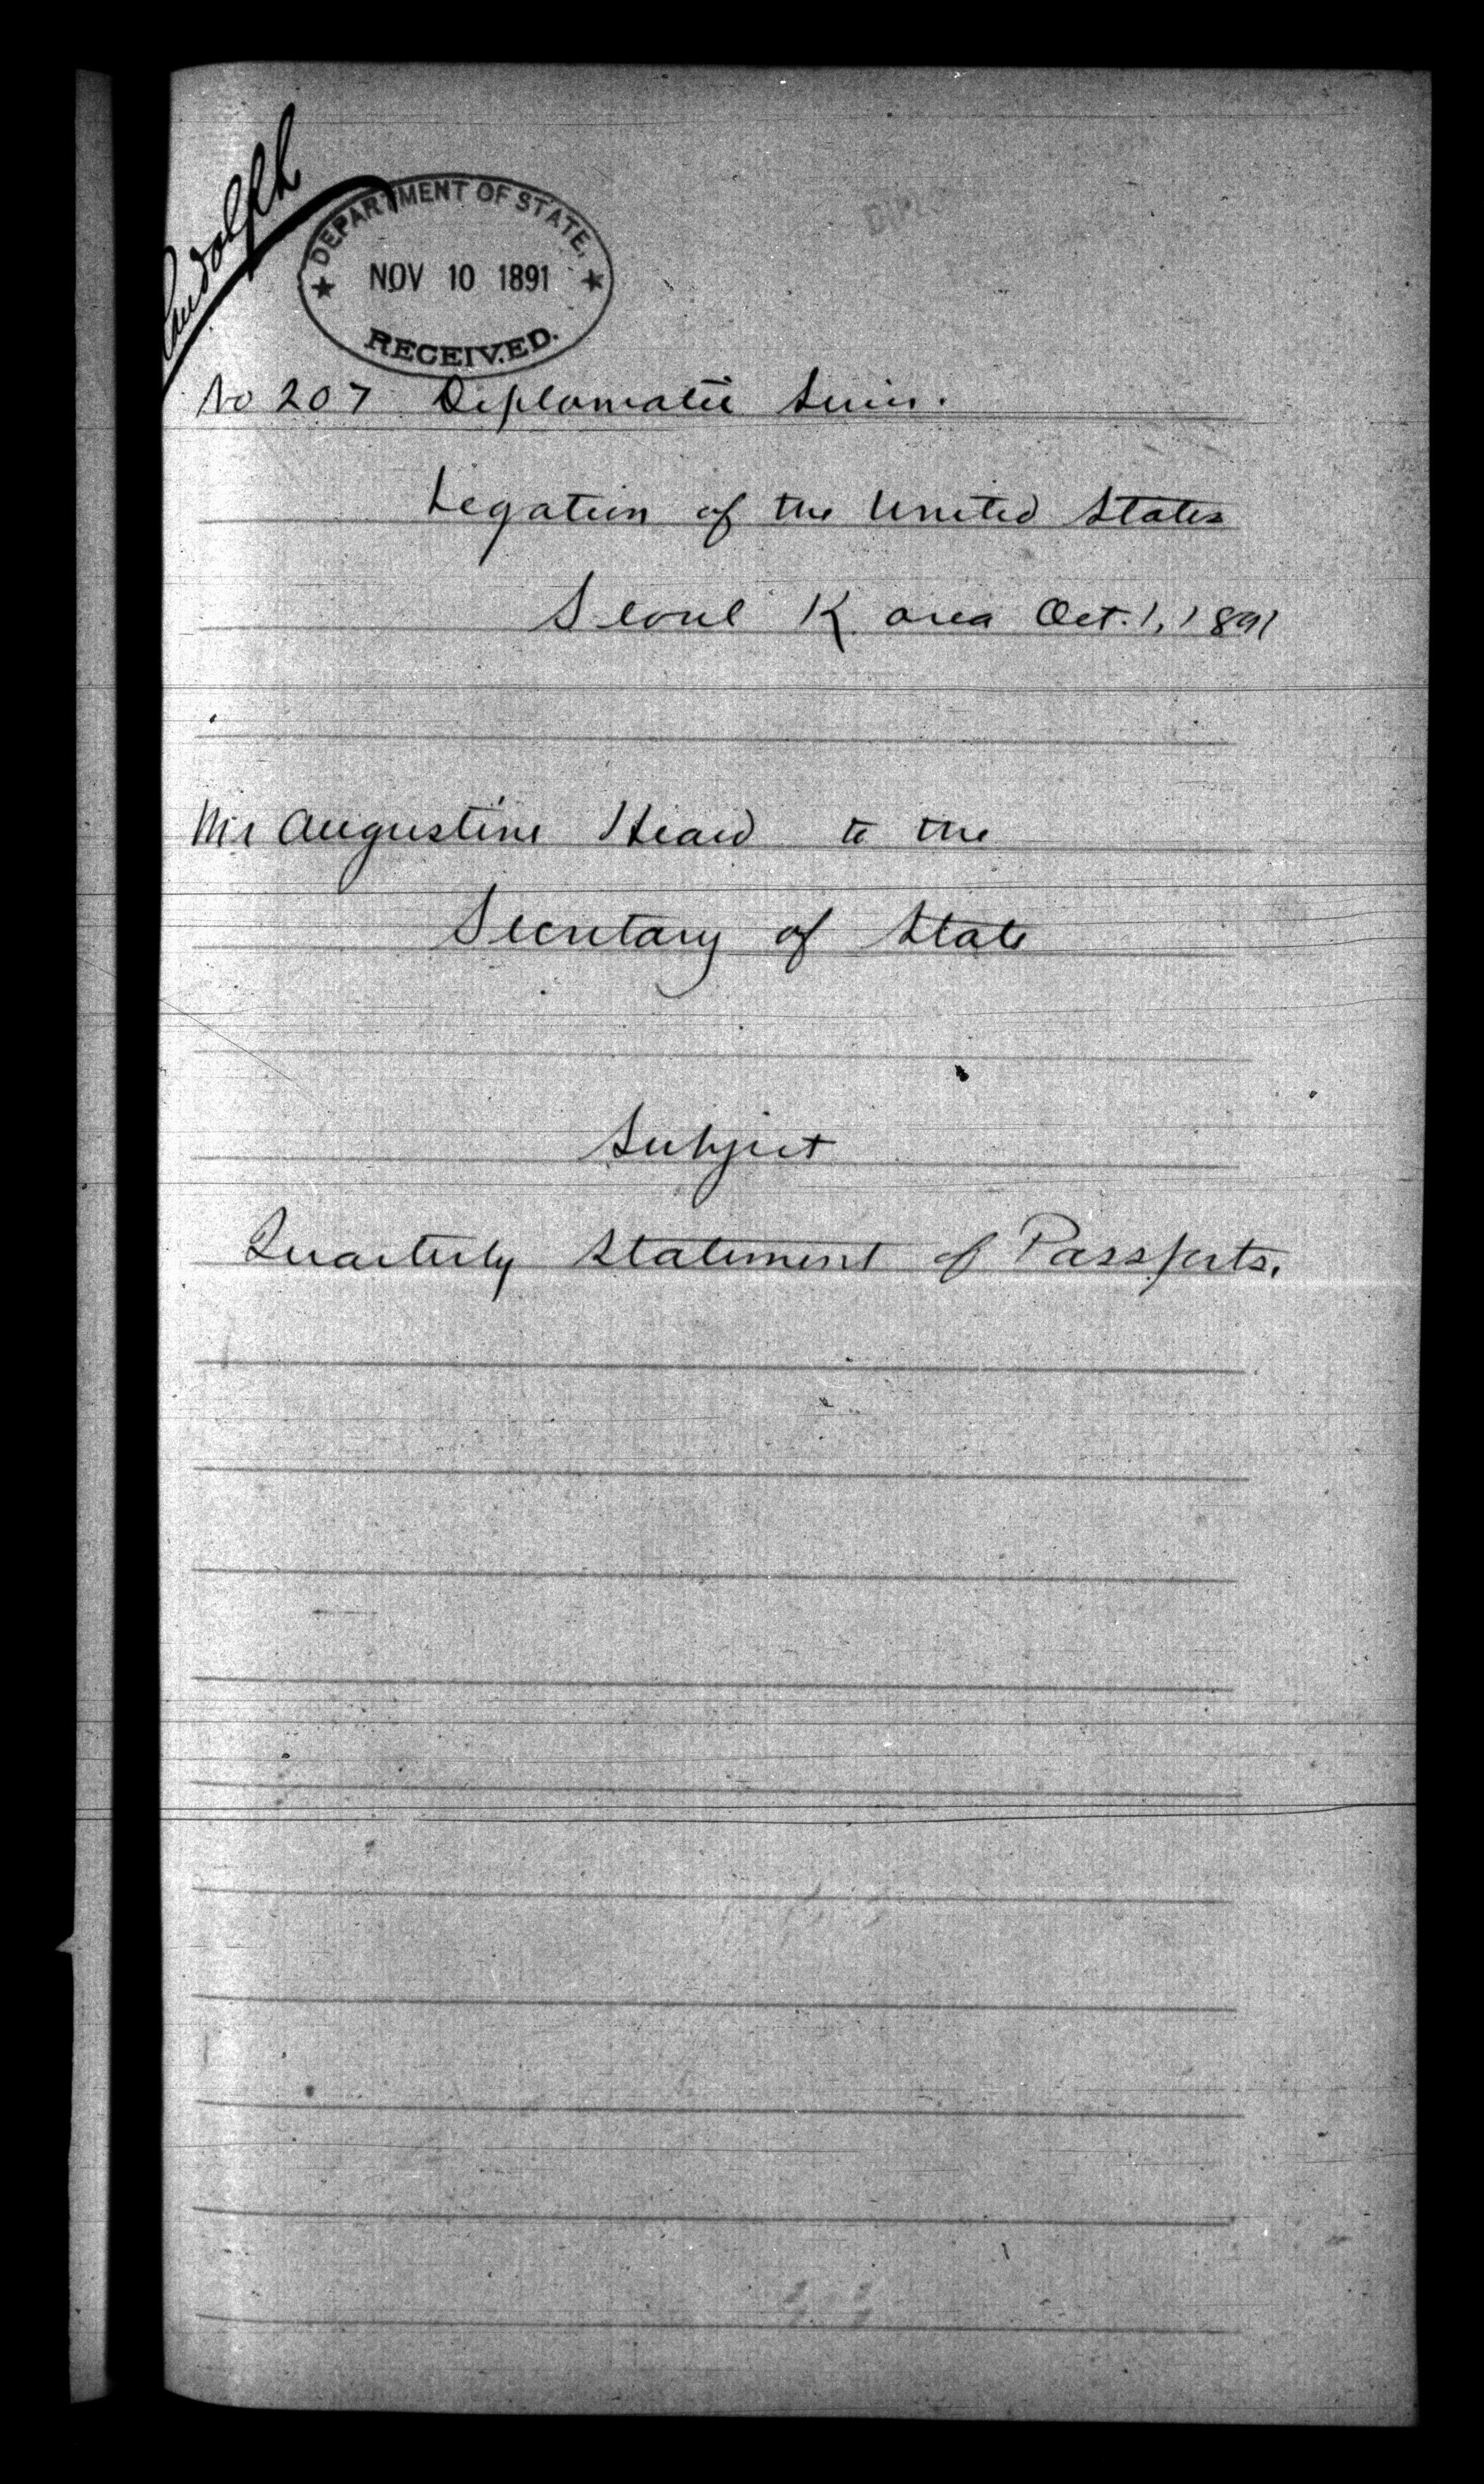 Rudolph
DEPARTMENT OF STATE,
NOV 10 1891
RECEIVED.
No 207 Diplomatic Series.
Legation of the United States
Seoul Korea Oct. 1, 1891
Mr Augustine Heard to the
Secretary of State
Subject
Quarterly Statement of Passports.